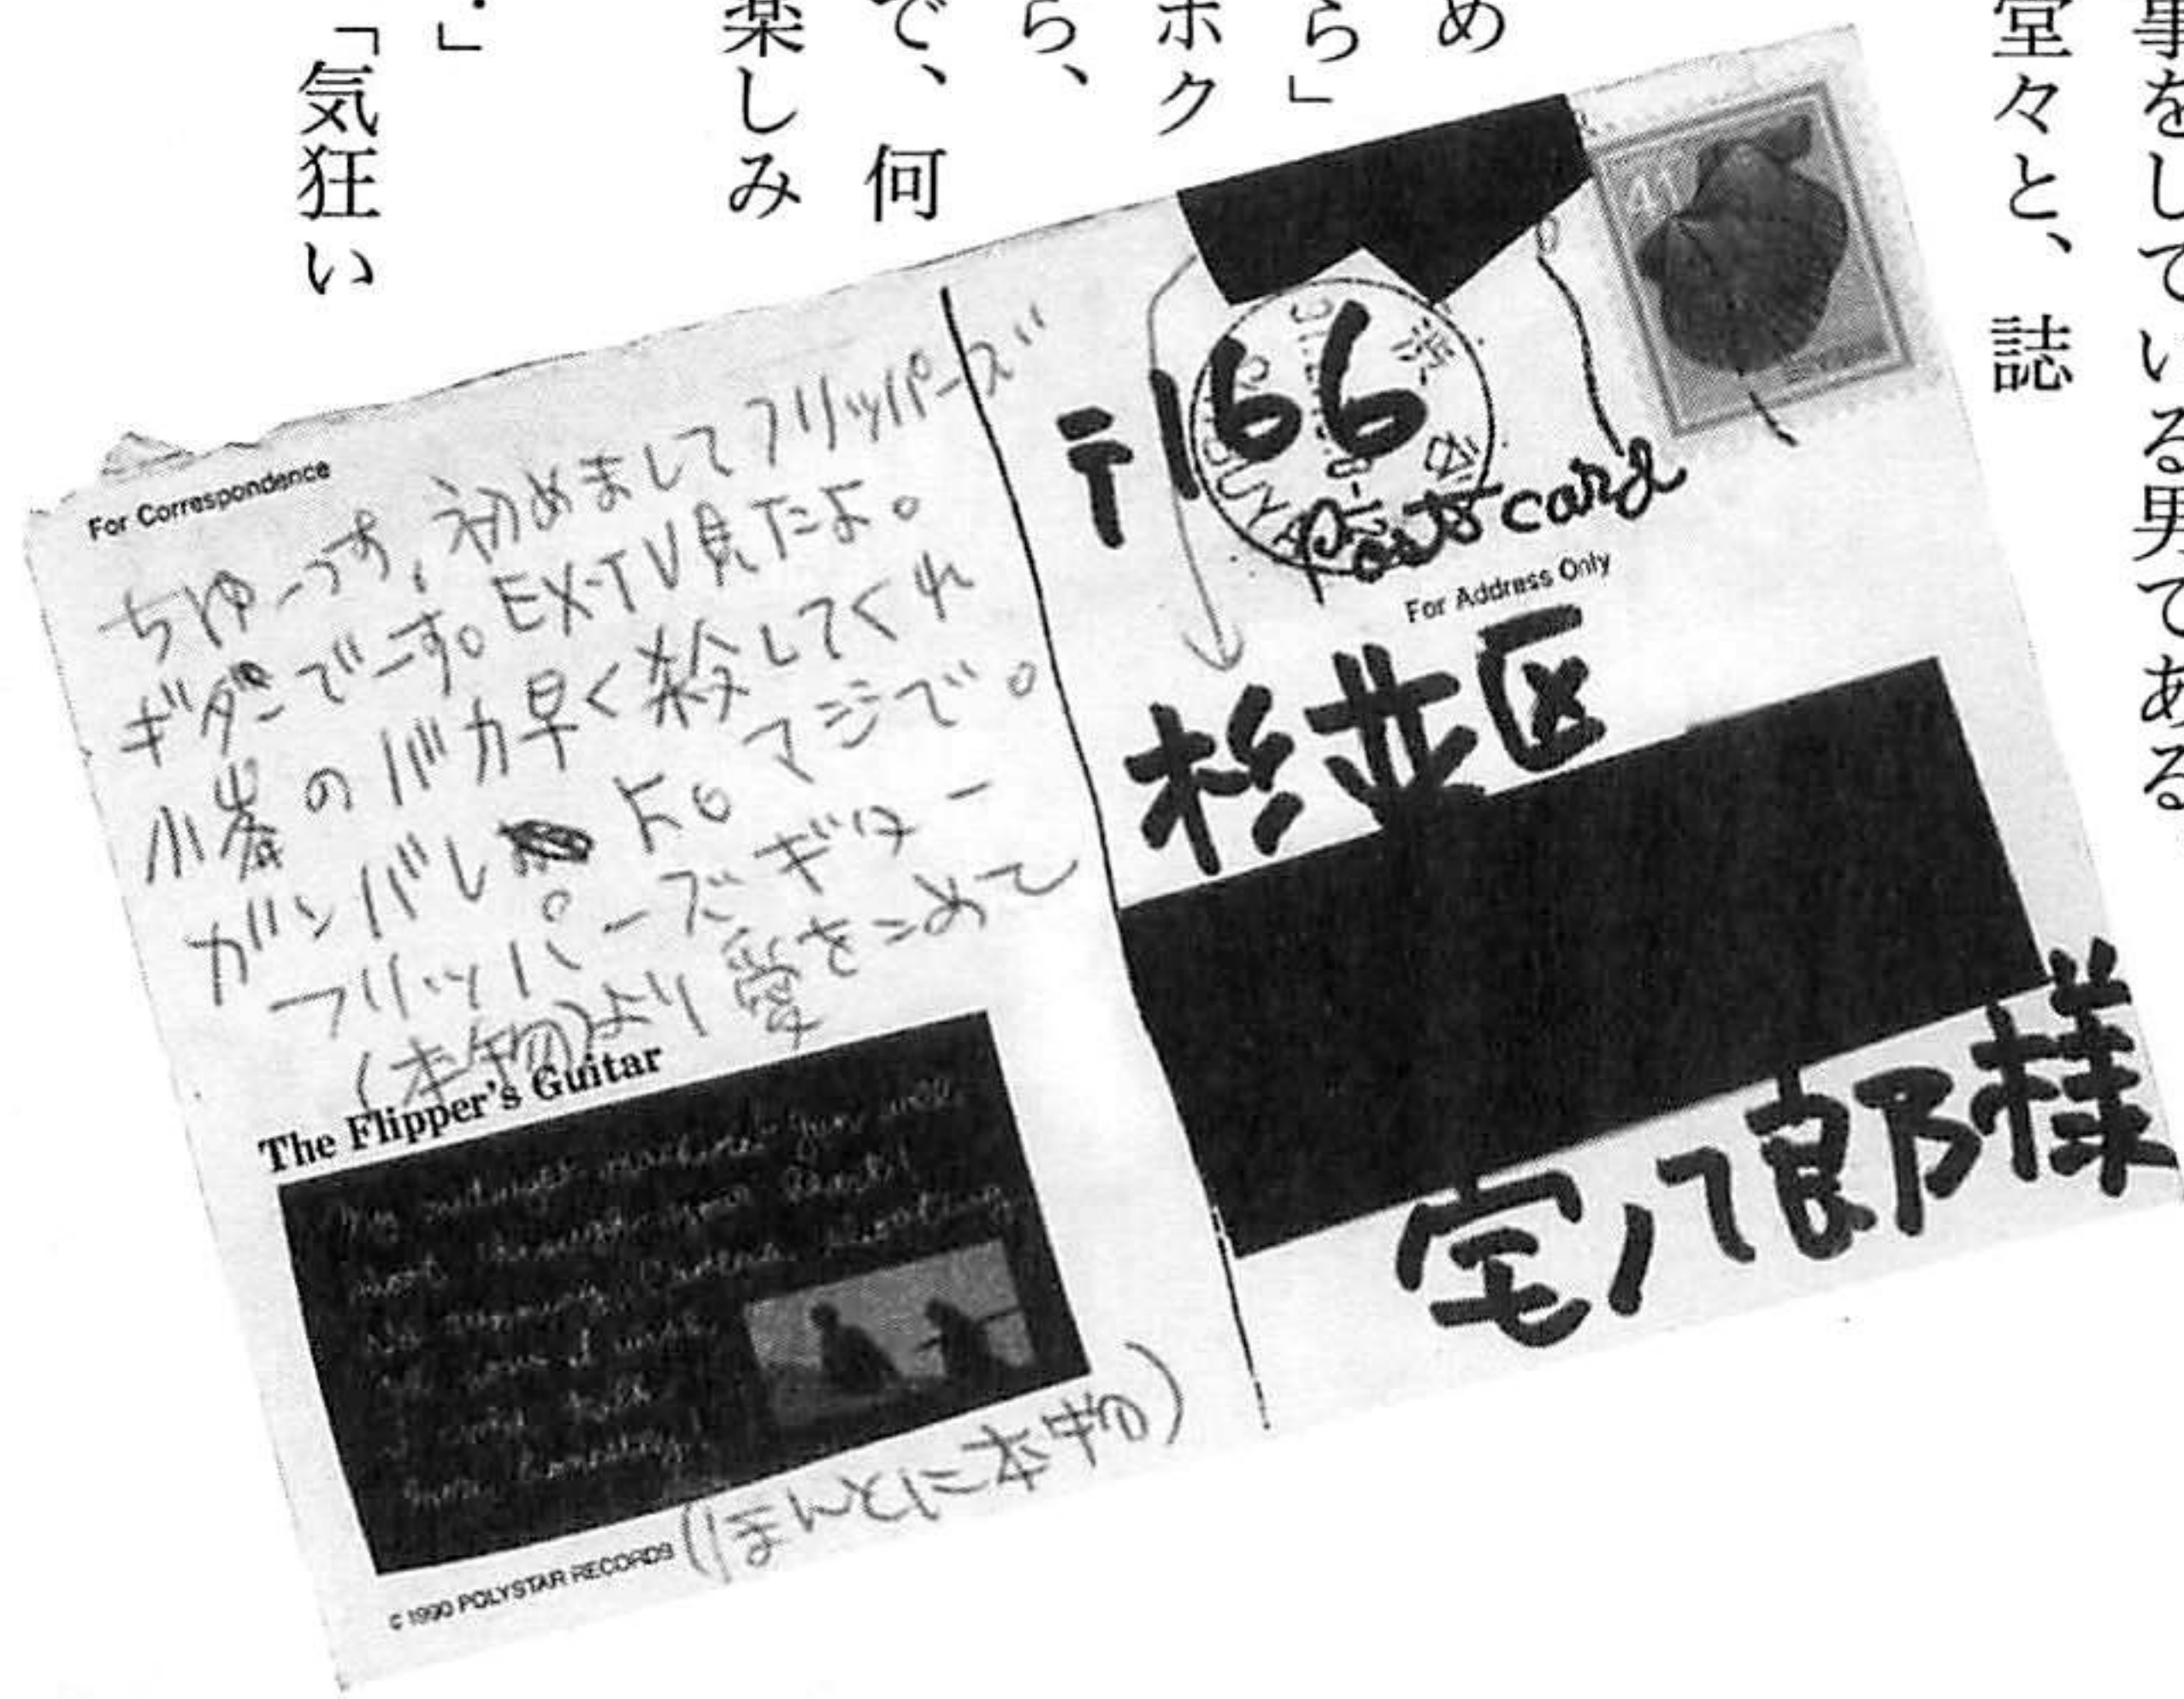 事をしている男である
堂々と、誌
め
ら」
ホク
ら、
で、何
楽しみ
」
「気狂い
For Correspondence
ちゅーっす、初めましてフリッパーズ
ギターでーす。EX-TV見たよ。
小峯のバカ早く殺してくれ
ガンバレよ。マジで。
フリッパーズギター
(本物)より愛をこめて
The Flipper's Guitar
© 1990 POLYSTAR RECORDS
(ほんとに本物)
41
渋谷
SHIBUYA
〒166
Post card
For Address Only
杉並区
宅八郎様